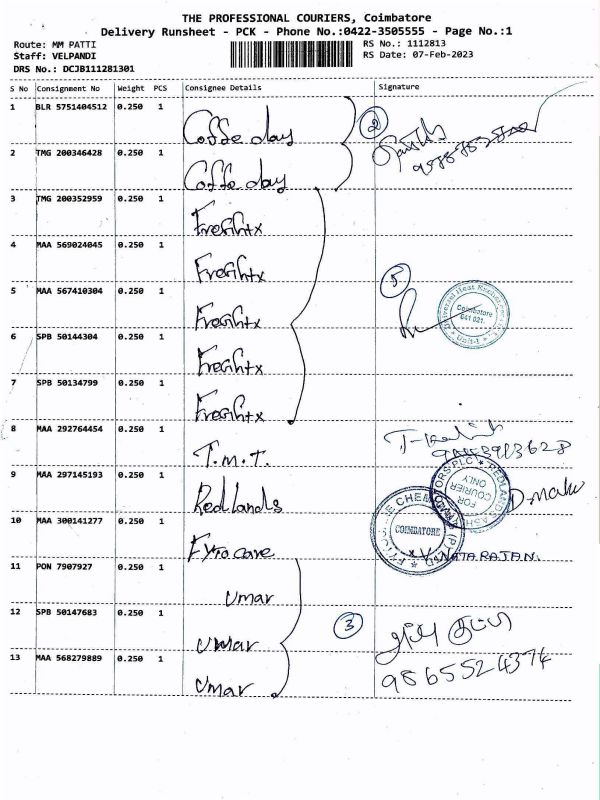 THE PROFESSIONAL COURIERS, Coimbatore
Delivery Runsheet - PCK - Phone No.:0422-3505555 - Page No.:1
Route: MM PATTI
RS No.: 1112813
Staff: VELPANDI
RS Date: 07-Feb-2023
DRS No.: DCJB111281301
S No Consignment No Weight PCS Consignee Details Signature
1 BLR 5751404512 0.250 1 Coffe day
2
2 TMG 200346428 0.250 1 Coffe day
3 TMG 200352959 0.250 1 Freightx
4 MAA 569024045 0.250 1 Freightx
5
5 MAA 567410304 0.250 1 Freightx
Coimbatore
641 021.
Unit-I
6 SPB 50144304 0.250 1 Freightx
7 SPB 50134799 0.250 1 Freightx
8 MAA 292764454 0.250 1 T.M.T.
9 MAA 297145193 0.250 1 Redlands
FOR
COURIER
ONLY
10 MAA 300141277 0.250 1 Fyrocare
COIMBATORE
NATARAJAN.
11 PON 7907927 0.250 1 Umar
12 SPB 50147683 0.250 1 Umar
3
13 MAA 568279889 0.250 1 Umar
9865524374